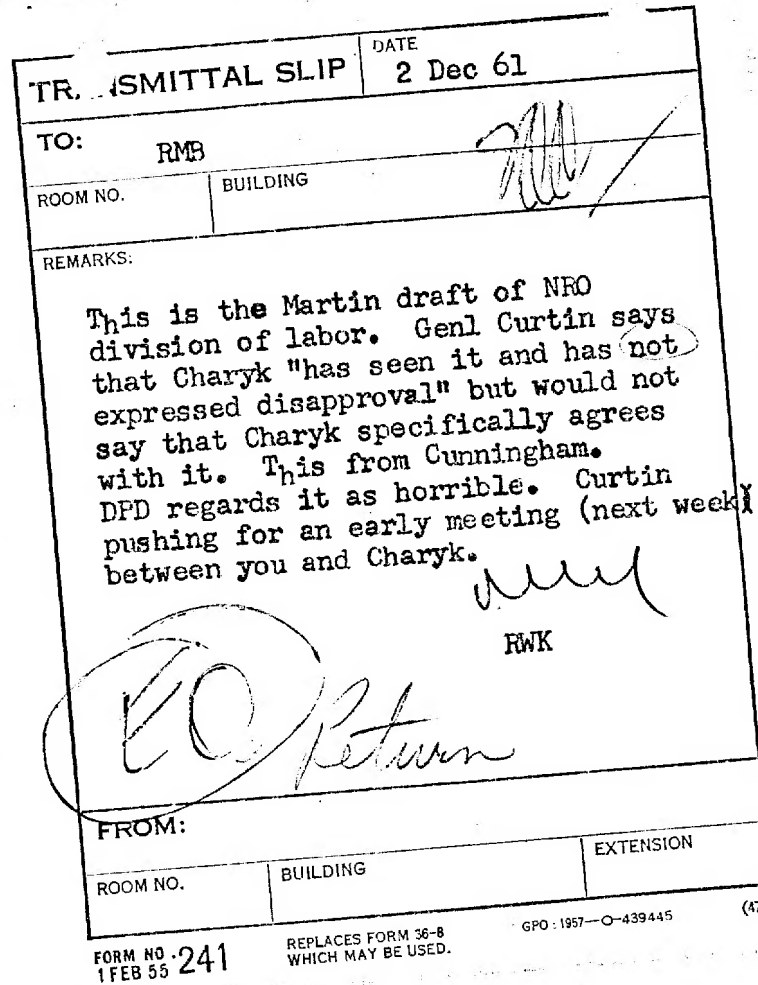 TRANSMITTAL SLIP
DATE
2 Dec 61
TO:
RMB
ROOM NO.
BUILDING
REMARKS:
This is the Martin draft of NRO
division of labor. Genl Curtin says
that Charyk "has seen it and has not
expressed disapproval" but would not
say that Charyk specifically agrees
with it. This from Cunningham.
DPD regards it as horrible. Curtin
pushing for an early meeting (next week)
between you and Charyk.
RWK
Return
FROM:
ROOM NO.
BUILDING
EXTENSION
FORM NO. 241
1 FEB 55
REPLACES FORM 36-8
WHICH MAY BE USED.
GPO : 1957—O-439445
(47